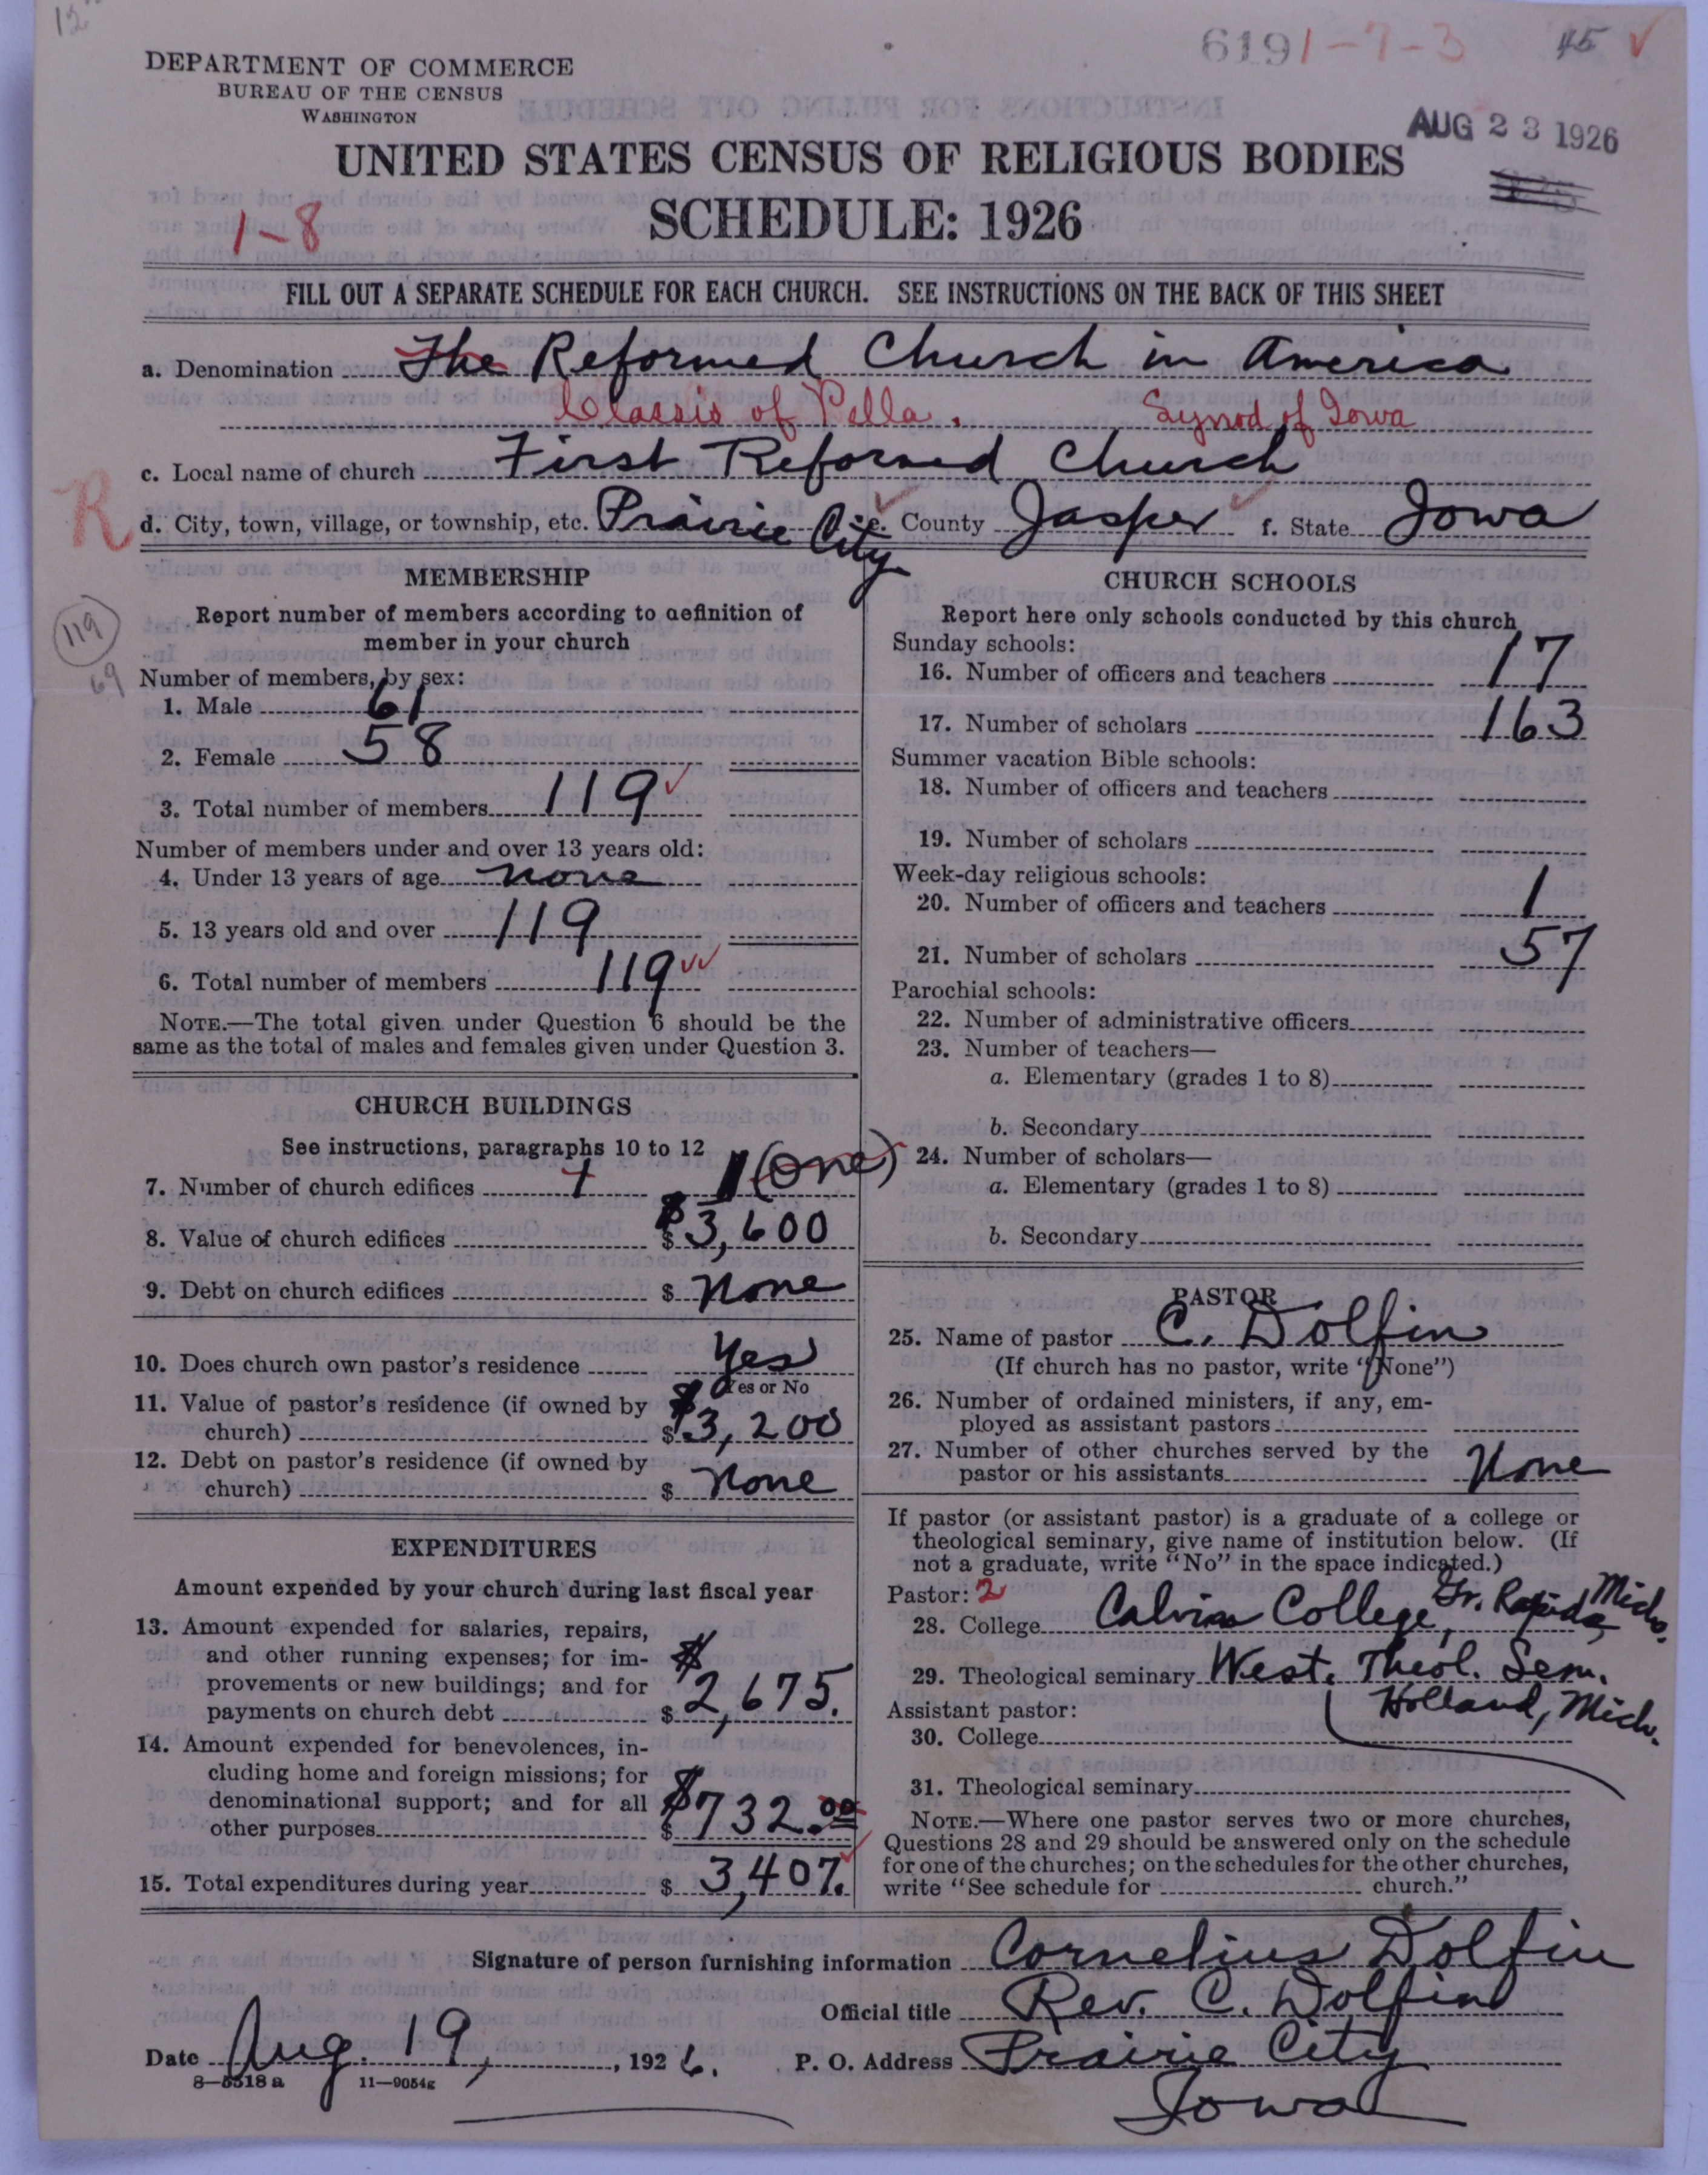 12
6191-7-3 45 ✓
DEPARTMENT OF COMMERCE
BUREAU OF THE CENSUS
WASHINGTON
AUG 23 1926
UNITED STATES CENSUS OF RELIGIOUS BODIES
SCHEDULE: 1926
1-8
FILL OUT A SEPARATE SCHEDULE FOR EACH CHURCH. SEE INSTRUCTIONS ON THE BACK OF THIS SHEET
a. Denomination The Reformed Church in America
Classis of Pella. Synod of Iowa
c. Local name of church First Reformed Church
R
d. City, town, village, or township, etc. Prairie City e. County Jasper f. State Iowa
MEMBERSHIP
Report number of members according to definition of
member in your church
119
69
Number of members, by sex:
1. Male 61
2. Female 58
3. Total number of members 119 ✓
Number of members under and over 13 years old:
4. Under 13 years of age none
5. 13 years old and over 119
6. Total number of members 119 ✓✓
NOTE.—The total given under Question 6 should be the
same as the total of males and females given under Question 3.
CHURCH BUILDINGS
See instructions, paragraphs 10 to 12
7. Number of church edifices 1 1 (One)
8. Value of church edifices $ $3,600
9. Debt on church edifices $ None
10. Does church own pastor's residence Yes
Yes or No
11. Value of pastor's residence (if owned by
church) $ $3,200
12. Debt on pastor's residence (if owned by
church) $ None
EXPENDITURES
Amount expended by your church during last fiscal year
13. Amount expended for salaries, repairs,
and other running expenses; for im-
provements or new buildings; and for
payments on church debt $ $2,675.
14. Amount expended for benevolences, in-
cluding home and foreign missions; for
denominational support; and for all
other purposes $ $732.00
15. Total expenditures during year $ 3,407.
CHURCH SCHOOLS
Report here only schools conducted by this church
Sunday schools:
16. Number of officers and teachers 17
17. Number of scholars 163
Summer vacation Bible schools:
18. Number of officers and teachers
19. Number of scholars
Week-day religious schools:
20. Number of officers and teachers 1
21. Number of scholars 57
Parochial schools:
22. Number of administrative officers
23. Number of teachers—
a. Elementary (grades 1 to 8)
b. Secondary
24. Number of scholars—
a. Elementary (grades 1 to 8)
b. Secondary
PASTOR
25. Name of pastor C. Dolfin
(If church has no pastor, write "None")
26. Number of ordained ministers, if any, em-
ployed as assistant pastors
27. Number of other churches served by the
pastor or his assistants None
If pastor (or assistant pastor) is a graduate of a college or
theological seminary, give name of institution below. (If
not a graduate, write "No" in the space indicated.)
Pastor: 2
28. College Calvin College, Gr. Rapids, Mich.
29. Theological seminary West. Theol. Sem.
Holland, Mich.
Assistant pastor:
30. College
31. Theological seminary
NOTE.—Where one pastor serves two or more churches,
Questions 28 and 29 should be answered only on the schedule
for one of the churches; on the schedules for the other churches,
write "See schedule for church."
Signature of person furnishing information Cornelius Dolfin
Official title Rev. C. Dolfin
Date Aug. 19, 1926. P. O. Address Prairie City
Iowa
8—5518 a 11—9054g